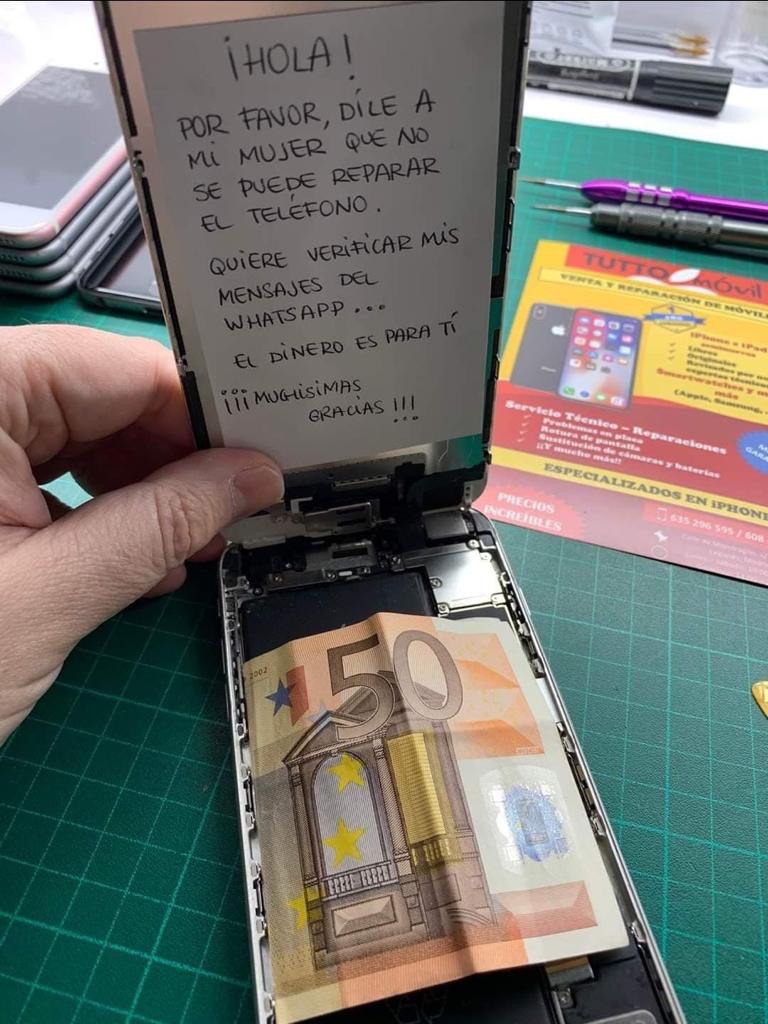 ¡HOLA!
POR FAVOR, DÍLE A
MI MUJER QUE NO
SE PUEDE REPARAR
EL TELÉFONO.
QUIERE VERIFICAR MIS
MENSAJES DEL
WHATSAPP...
EL DINERO ES PARA TÍ
¡¡¡MUCHÍSIMAS
GRACIAS!!!
TUTTO MÓVIL
VENTA Y REPARACIÓN DE MÓVILE
iPhone e iPad
Libres
Originales
Revisados por
expertos técnico
Smartwatches y m
más
(Apple, Samsung,
Servicio Técnico - Reparaciones
Problemas en placa
Rotura de pantalla
Sustitución de cámaras y baterías
¡¡Y mucho más!!
ESPECIALIZADOS EN iPHONE
PRECIOS
INCREÍBLES
635 296 595 / 608
2002
50